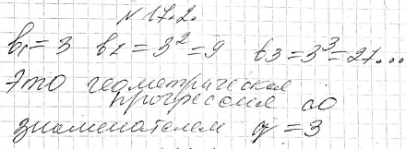 № 17.2.
b₁ = 3 b₂ = 3² = 9 b₃ = 3³ = 27...
Это геометрическая
прогрессия со
знаменателем q = 3